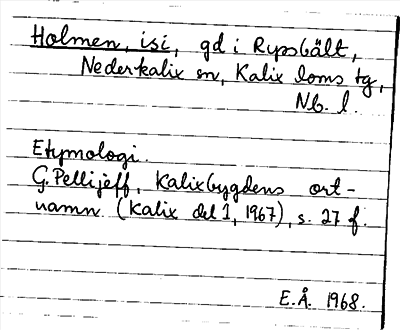 Holmen, isi, gd i Rypsbält,
Nederkalix sn, Kalix loms tg,
Nb. l.
Etymologi.
G. Pellijeff, Kalixbygdens ort-
namn. (Kalix del I, 1967), s. 27 f.
E.Å. 1968.